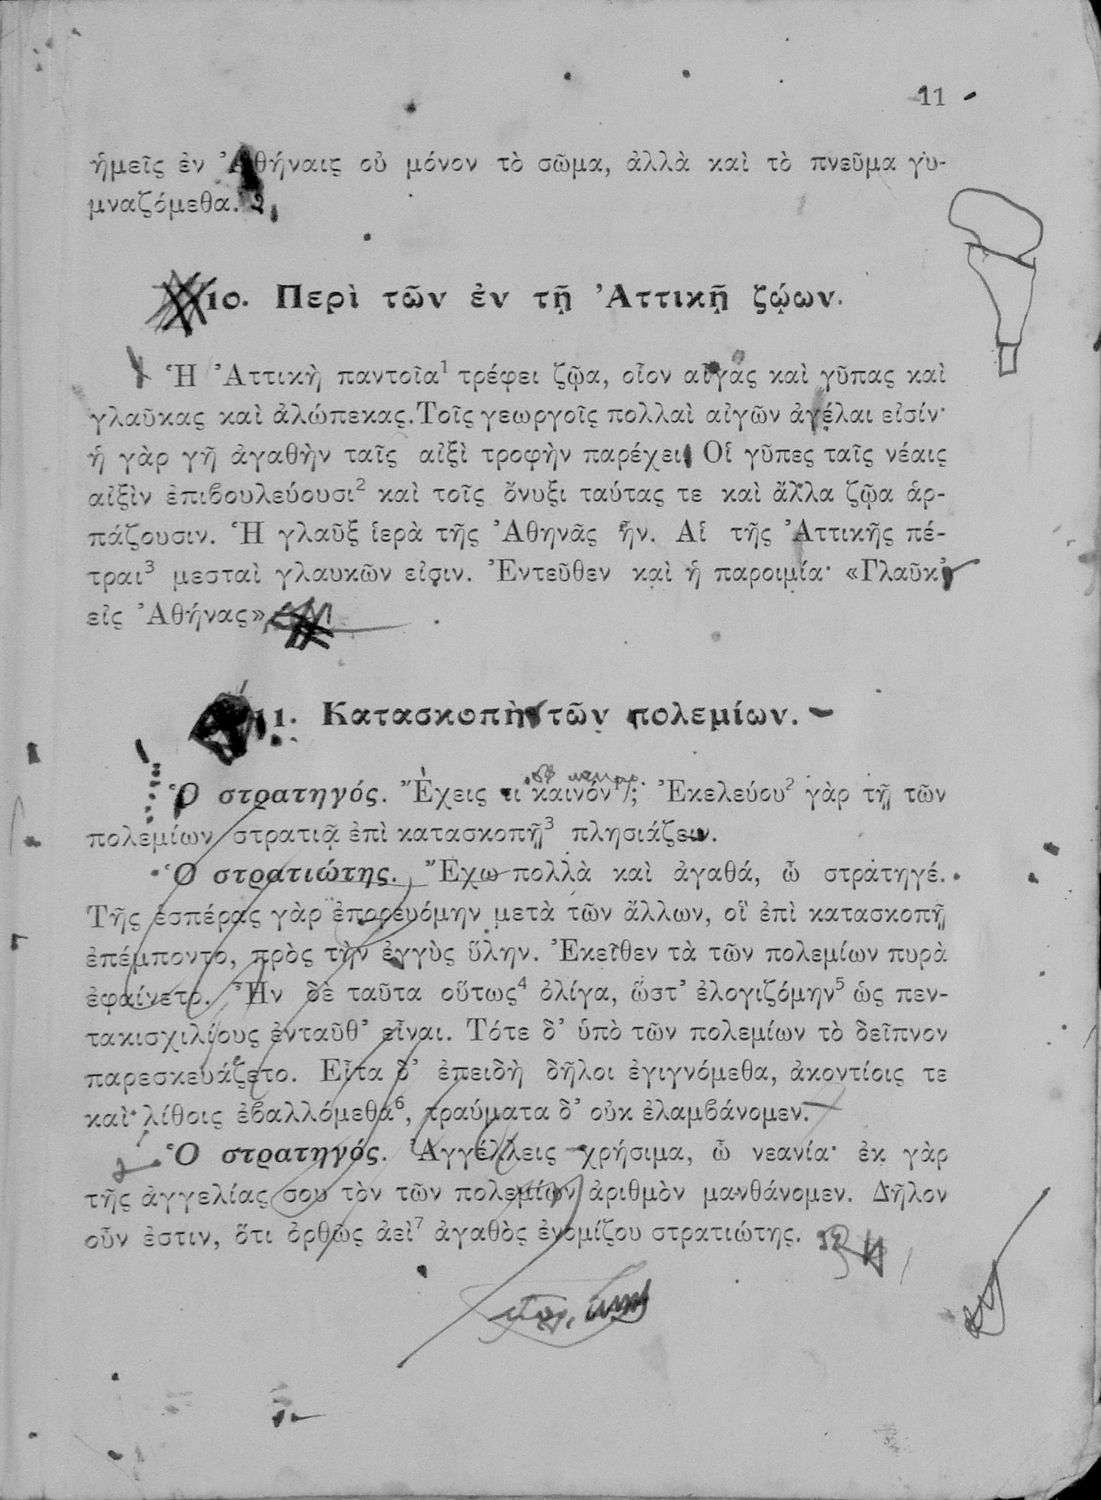 11
ἡμεῖς ἐν Ἀθήναις οὐ μόνον τὸ σῶμα, ἀλλὰ καὶ τὸ πνεῦμα γυ-
μναζόμεθα.
10. Περὶ τῶν ἐν τῇ Ἀττικῇ ζῴων.
Ἡ Ἀττικὴ παντοῖα¹ τρέφει ζῷα, οἷον αἶγας καὶ γῦπας καὶ
γλαῦκας καὶ ἀλώπεκας. Τοῖς γεωργοῖς πολλαὶ αἰγῶν ἀγέλαι εἰσίν·
ἡ γὰρ γῆ ἀγαθὴν ταῖς αἰξὶ τροφὴν παρέχει. Οἱ γῦπες ταῖς νέαις
αἰξὶν ἐπιβουλεύουσι² καὶ τοῖς ὄνυξι ταύτας τε καὶ ἄλλα ζῷα ἁρ-
πάζουσιν. Ἡ γλαῦξ ἱερὰ τῆς Ἀθηνᾶς ἦν. Αἱ τῆς Ἀττικῆς πέ-
τραι³ μεσταὶ γλαυκῶν εἰσιν. Ἐντεῦθεν καὶ ἡ παροιμία· «Γλαῦκ’
εἰς Ἀθήνας»
11. Κατασκοπὴ τῶν πολεμίων.
Ὁ στρατηγός. Ἔχεις τι καινόν¹; Ἐκελεύου² γὰρ τῇ τῶν
πολεμίων στρατιᾷ ἐπὶ κατασκοπῇ³ πλησιάζειν.
Ὁ στρατιώτης. Ἔχω πολλὰ καὶ ἀγαθά, ὦ στρατηγέ.
Τῆς ἑσπέρας γὰρ ἐπορευόμην μετὰ τῶν ἄλλων, οἳ ἐπὶ κατασκοπῇ
ἐπέμποντο, πρὸς τὴν ἐγγὺς ὕλην. Ἐκεῖθεν τὰ τῶν πολεμίων πυρὰ
ἐφαίνετο. Ἦν δὲ ταῦτα οὕτως⁴ ὀλίγα, ὥστ’ ἐλογιζόμην⁵ ὡς πεν-
τακισχιλίους ἐνταῦθ’ εἶναι. Τότε δ’ ὑπὸ τῶν πολεμίων τὸ δεῖπνον
παρεσκευάζετο. Εἶτα δ’ ἐπειδὴ δῆλοι ἐγιγνόμεθα, ἀκοντίοις τε
καὶ λίθοις ἐβαλλόμεθα⁶, τραύματα δ’ οὐκ ἐλαμβάνομεν.
Ὁ στρατηγός. Ἀγγέλλεις χρήσιμα, ὦ νεανία· ἐκ γὰρ
τῆς ἀγγελίας σου τὸν τῶν πολεμίων ἀριθμὸν μανθάνομεν. Δῆλον
οὖν ἐστιν, ὅτι ὀρθῶς ἀεὶ⁷ ἀγαθὸς ἐνομίζου στρατιώτης.